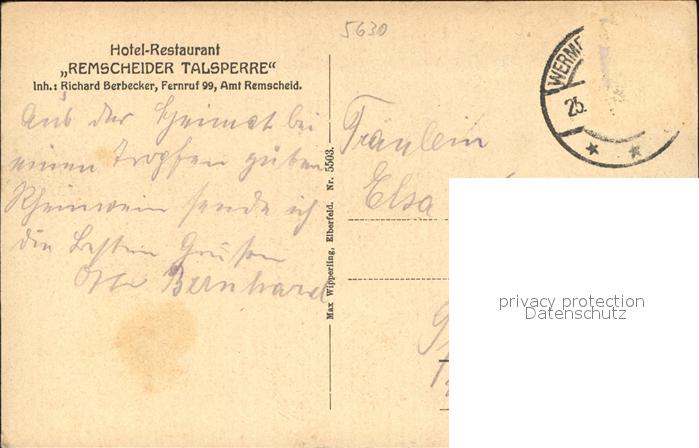 5630
Hotel-Restaurant
„REMSCHEIDER TALSPERRE“
Inh.: Richard Berbecker, Fernruf 99, Amt Remscheid.
WERME
25.
Aus der Heimat bei
einen Tropfen guten
Rheinwein sende ich
die besten Grüßen
Bernhard
Max Wipperling, Elberfeld. Nr. 5503.
Fräulein
Elsa
privacy protection
Datenschutz